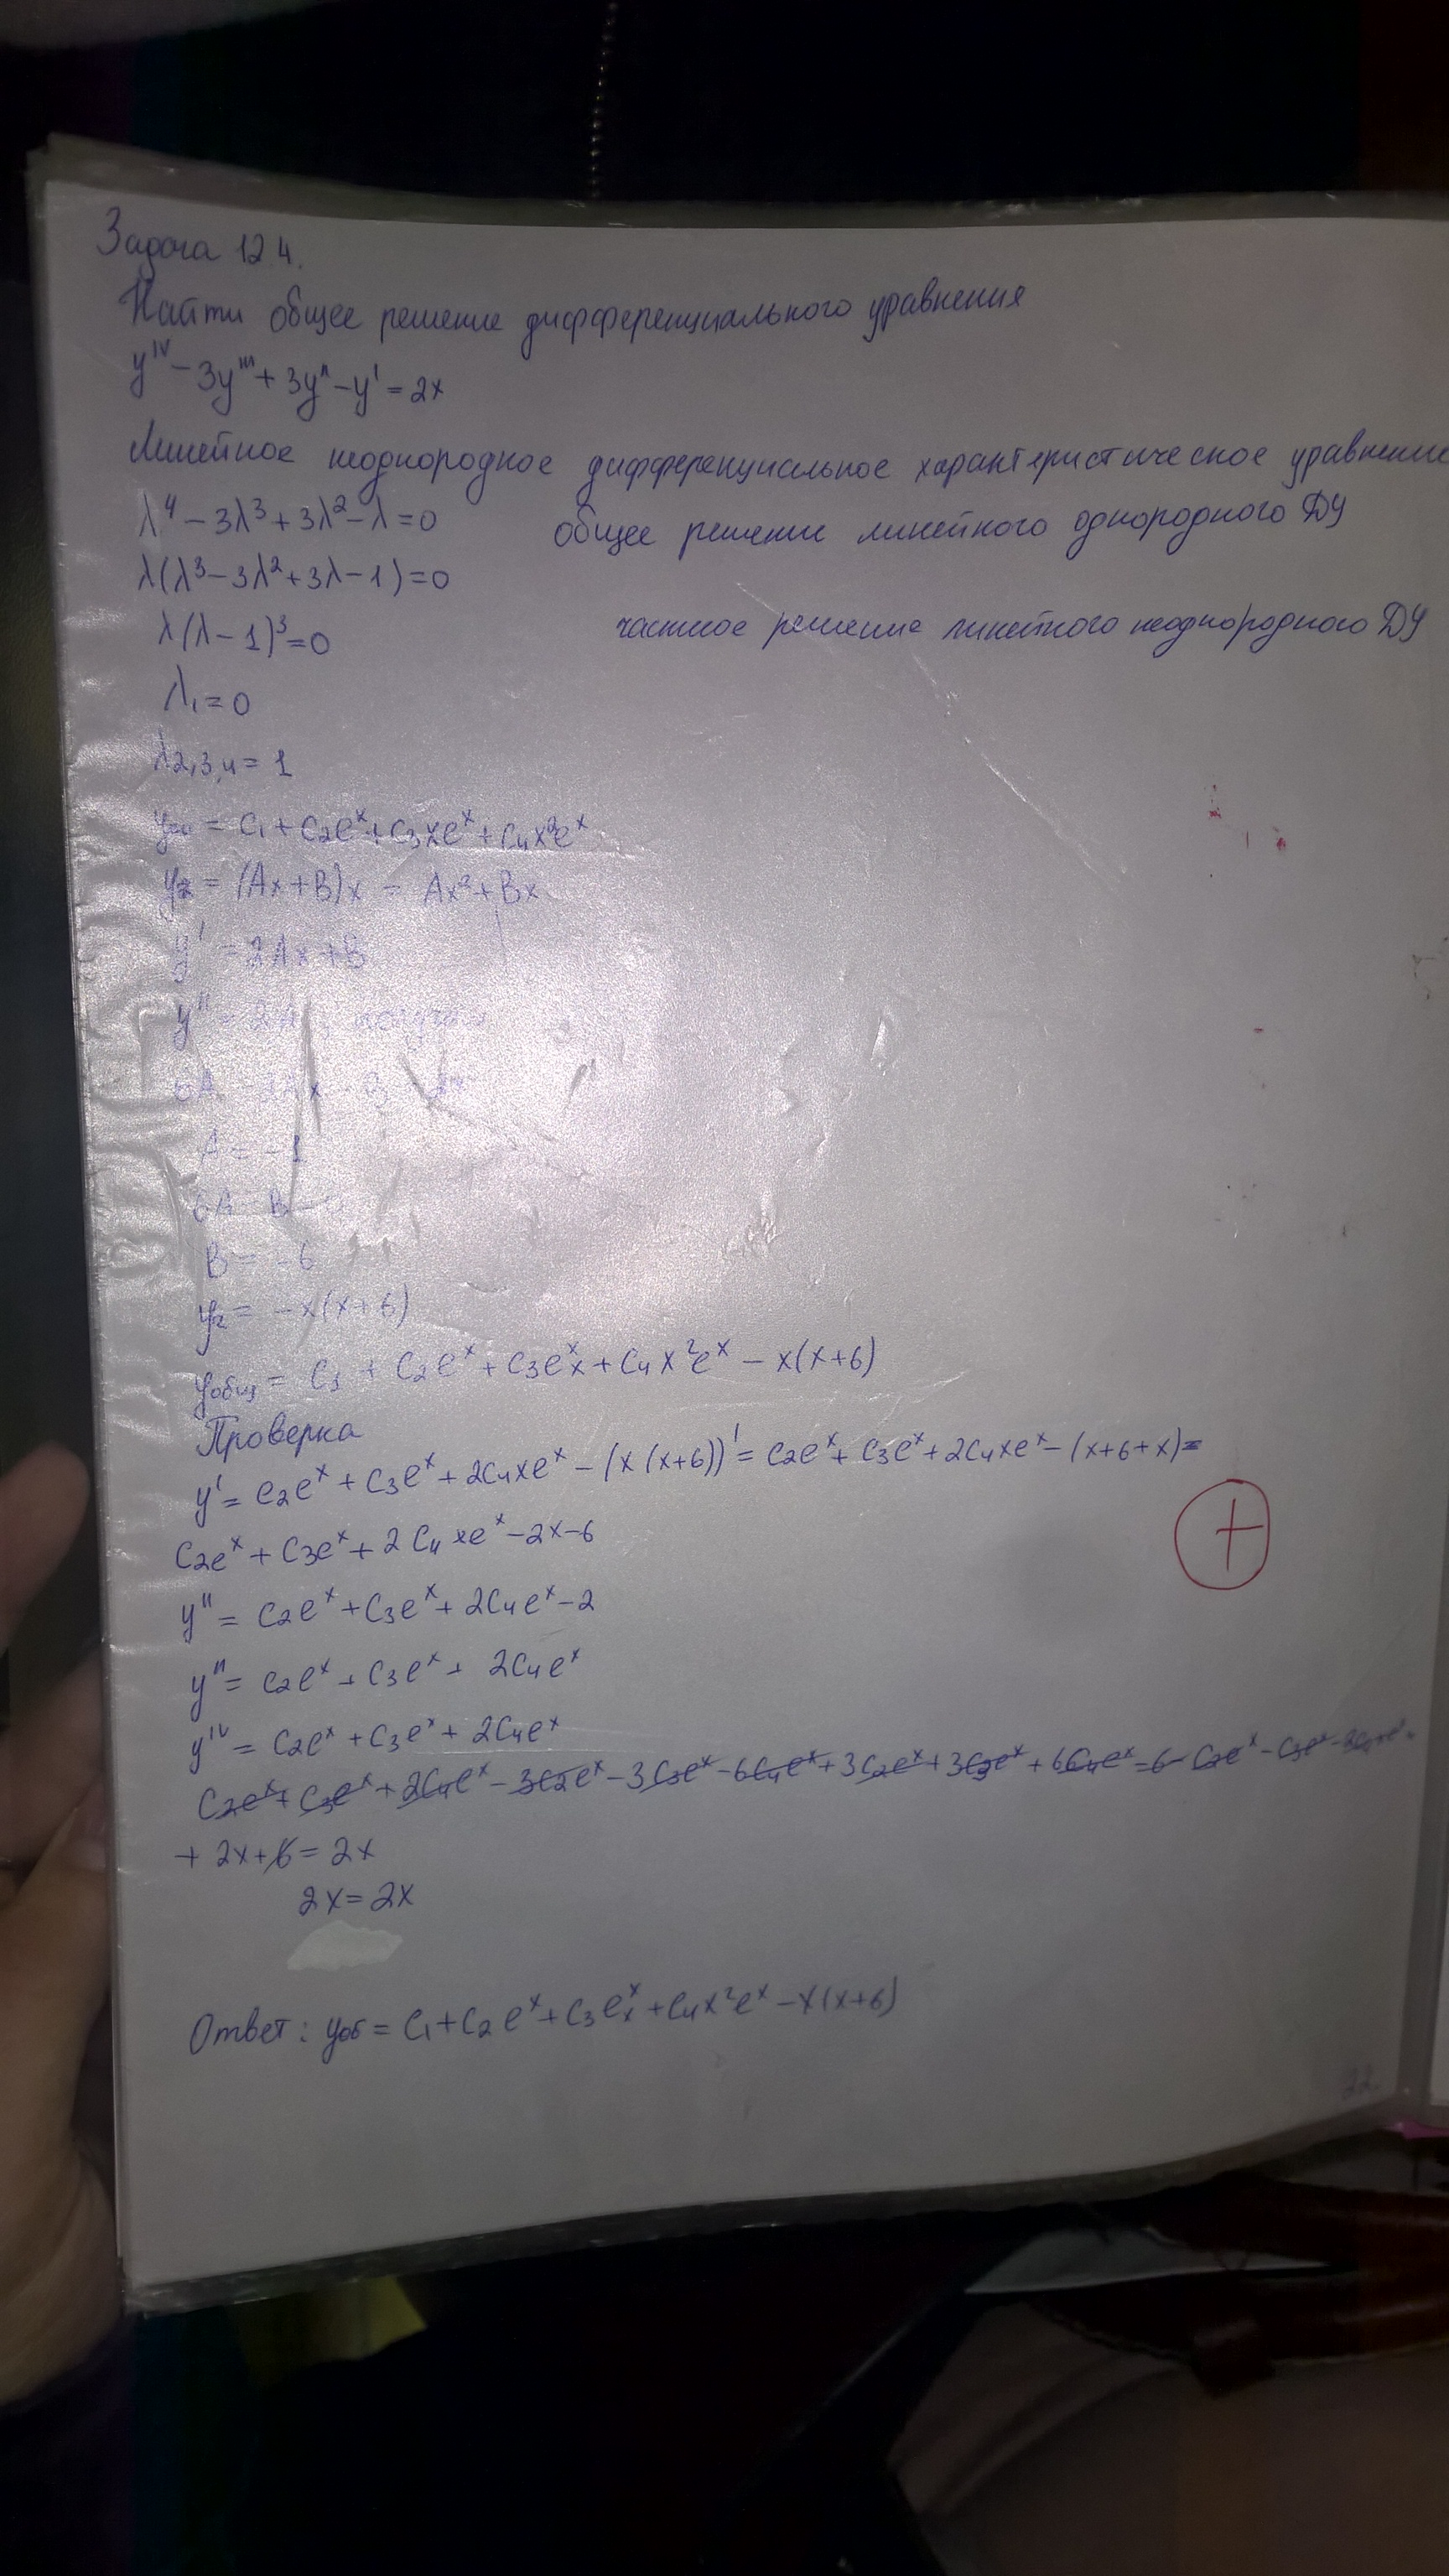 Задача 12.4.
Найти общее решение дифференциального уравнения
y^IV − 3y''' + 3y'' − y' = 2x
Линейное неоднородное дифференциальное характеристическое уравнение
λ^4 − 3λ^3 + 3λ^2 − λ = 0
общее решение линейного однородного ДУ
λ(λ^3 − 3λ^2 + 3λ − 1) = 0
λ(λ − 1)^3 = 0
частное решение линейного неоднородного ДУ
λ1 = 0
λ2,3,4 = 1
yоо = C1 + C2e^x + C3xe^x + C4x^2e^x
yч = (Ax + B)x = Ax^2 + Bx
y' = 2Ax + B
y'' = 2A, получим
6A − 2Ax − B = 2x
A = −1
6A − B = 0
B = −6
yч = −x(x+6)
yобщ = C1 + C2e^x + C3e^x x + C4x^2e^x − x(x+6)
Проверка
y' = C2e^x + C3e^x + 2C4xe^x − (x(x+6))' = C2e^x + C3e^x + 2C4xe^x − (x+6+x) =
C2e^x + C3e^x + 2C4xe^x − 2x − 6
y'' = C2e^x + C3e^x + 2C4e^x − 2
y''' = C2e^x + C3e^x + 2C4e^x
y^IV = C2e^x + C3e^x + 2C4e^x
C2e^x + C3e^x + 2C4e^x − 3C2e^x − 3C3e^x − 6C4e^x + 3C2e^x + 3C3e^x + 6C4e^x = 6 − C2e^x − C3e^x
+ 2x + 6 = 2x
2x = 2x
+
Ответ: yоб = C1 + C2e^x + C3e^x x + C4x^2e^x − x(x+6)
22